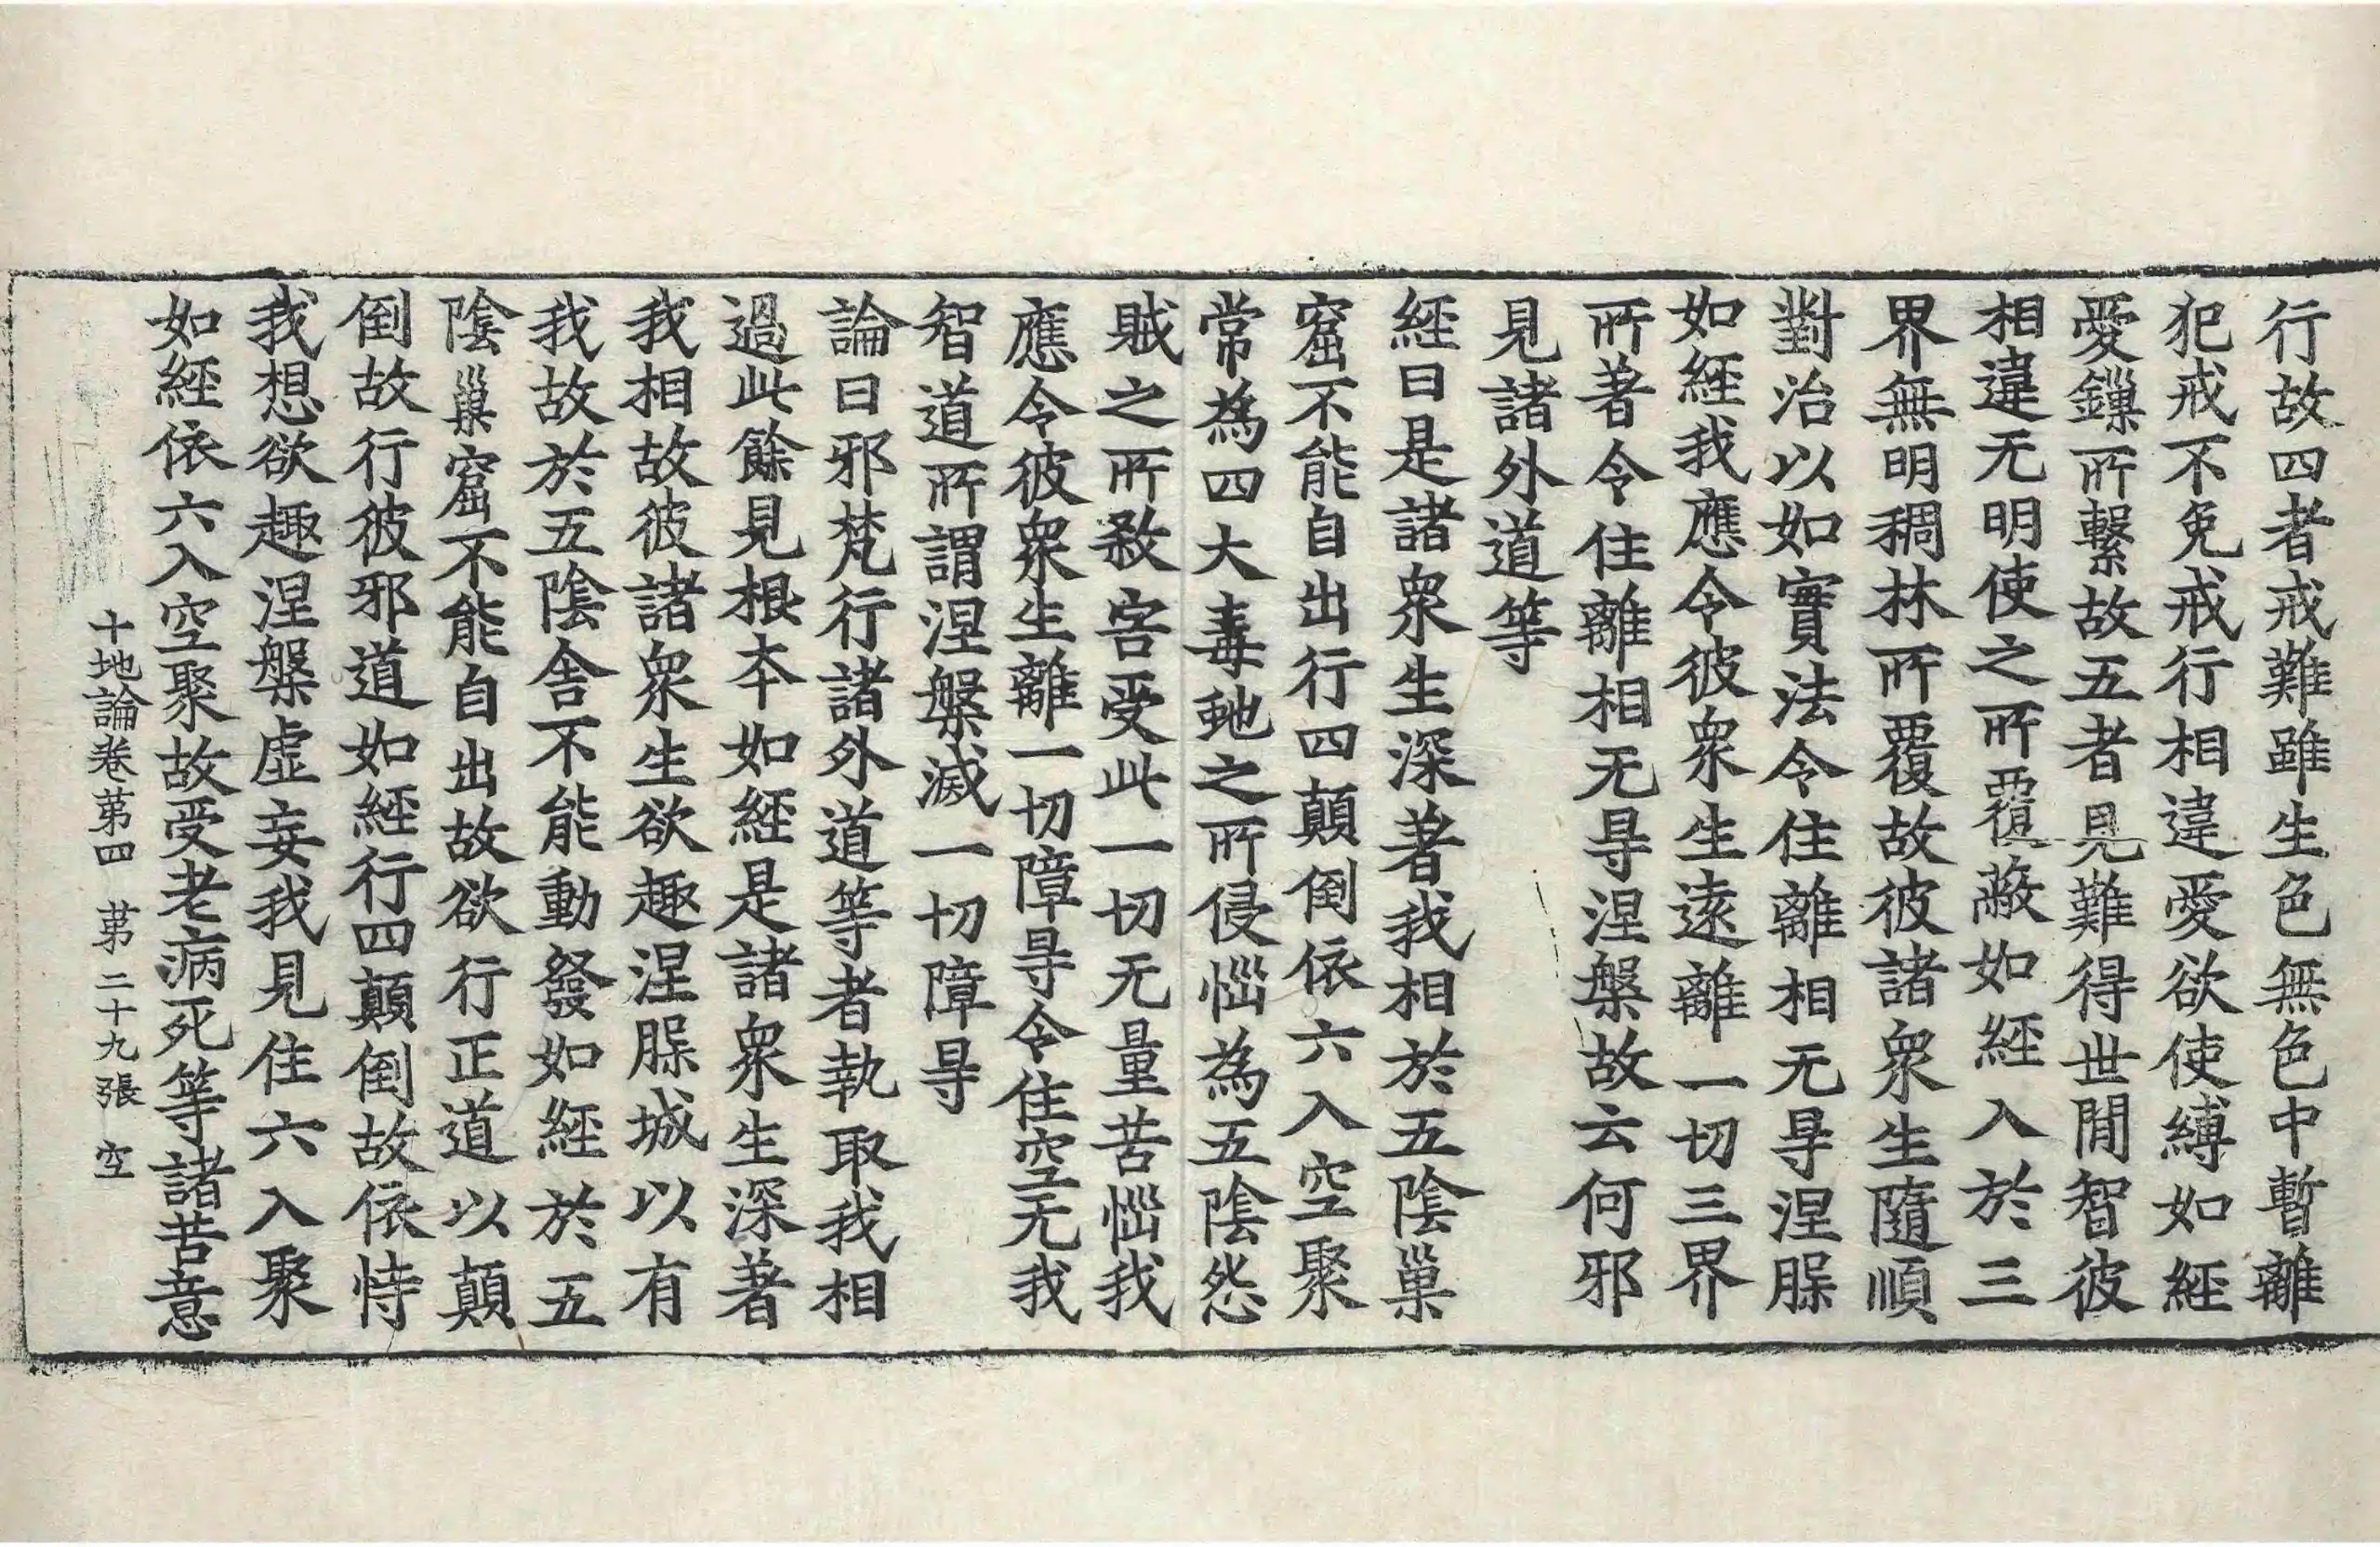 行故四者戒難雖生色無色中暫離
犯戒不免戒行相違愛欲使縛如經
愛鏁所繫故五者見難得世間智彼
相違无明使之所覆蔽如經入於三
界無明稠林所覆故彼諸衆生隨順
對治以如實法令住離相无㝵涅槃
如經我應令彼衆生遠離一切三界
所著令住離相无㝵涅槃故云何邪
見諸外道等
經曰是諸衆生深著我相於五陰巢
窟不能自出行四顛倒依六入空聚
常為四大毒虵之所侵惱為五陰怨
賊之所敎害受此一切无量苦惱我
應令彼衆生離一切障㝵令住空无我
智道所謂涅槃滅一切障㝵
論曰邪梵行諸外道等者執取我相
過此餘見根本如經是諸衆生深著
我相故彼諸衆生欲趣涅槃城以有
我故於五陰舍不能動發如經於五
陰巢窟不能自出故欲行正道以顛
倒故行彼邪道如經行四顛倒故依恃
我想欲趣涅槃虛妄我見住六入聚
如經依六入空聚故受老病死等諸苦意
十地論卷苐四 苐二十九張 空